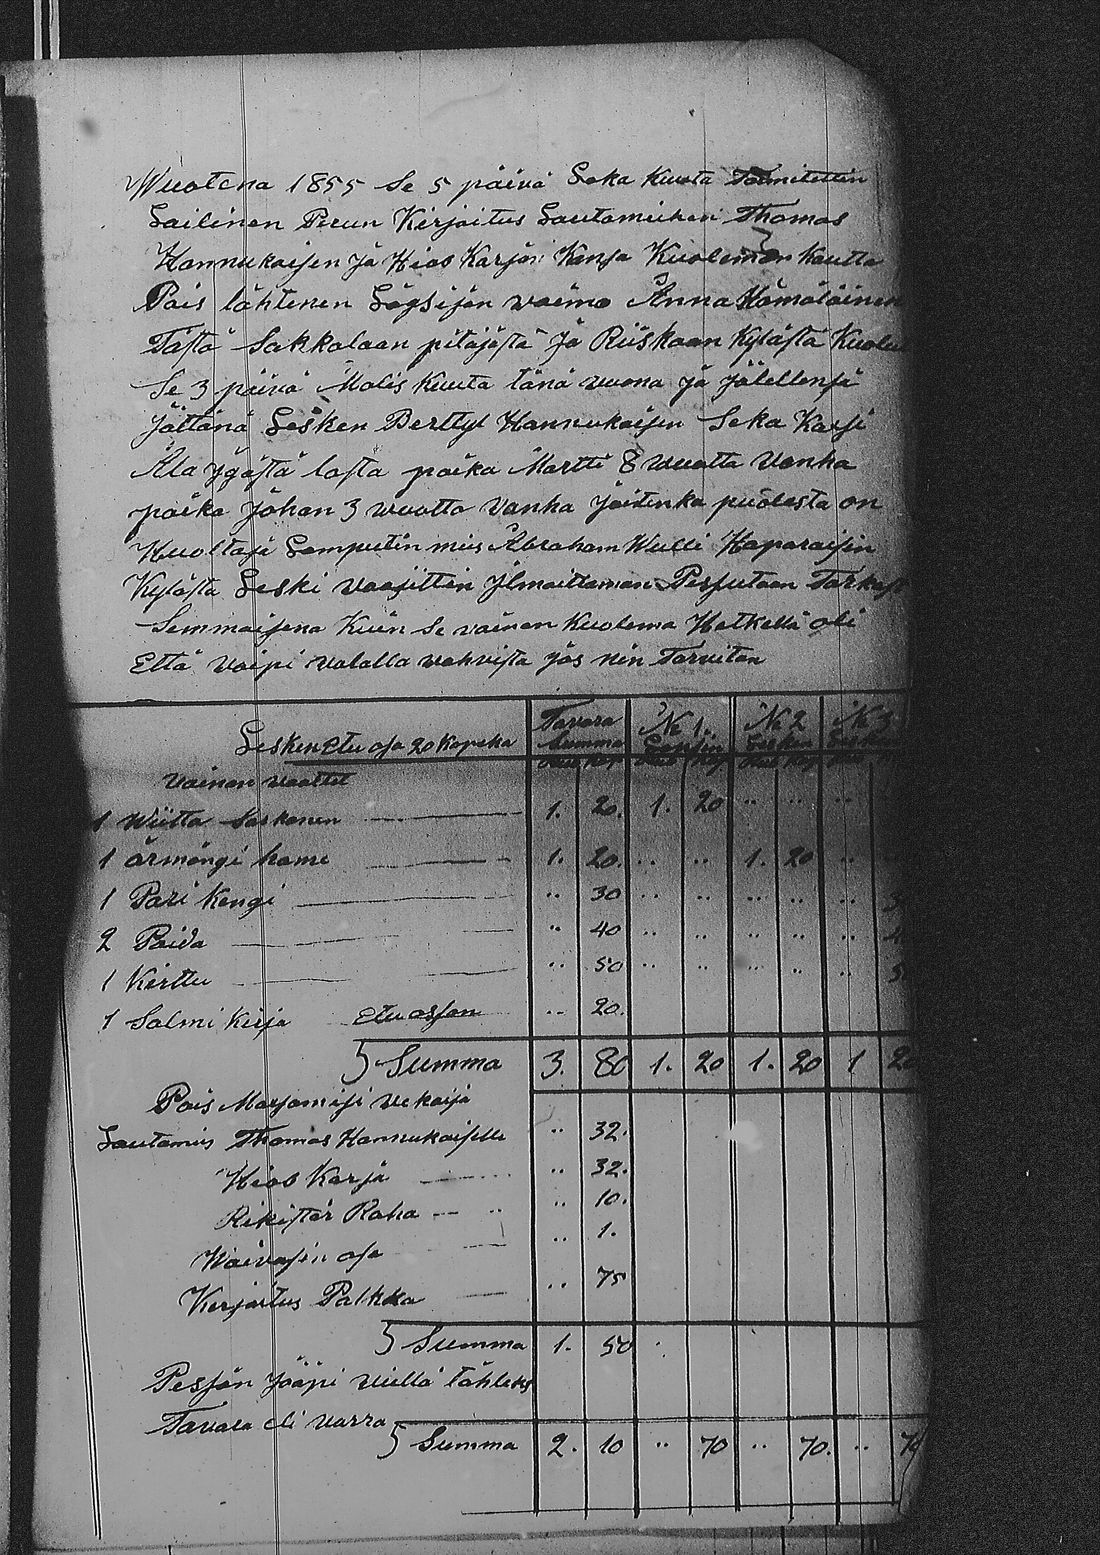 Wuotena 1855 Se 5 päivä Loka Kuuta Toimitettin
Lailinen Perun Kirjoitus Lautamiehen Thomas
Hannukaisen ja Hiob Karjan Kansa Kuoleman Kautta
Pois lähtenen Löysijän vaimo Anna Hämäläinen
Tästä Sakkolaan pitäjästä ja Riiskaan Kylästä Kuolut
Se 3 päivä Malis Kuuta tänä vuona ja jälellensä
Jättänä Lesken Berttyl Hannukaisen Seka Kaxi
Ala ygästä lasta poika Martti 8 vuotta Vanha
poika Johan 3 wuotta Vanha joidenka puolesta on
Huoltaja Lamputin mies Abraham Wulli Haparaisin
Kylästä Leski Vaadittin ilmoittaman Pesjutaan Tarkast
Semmaisena Kuin Se vainan Kuolema Hetkellä oli
Että Vaipi valalla vahvista jos nin Tarvitan
Lesken etu osa 20 Kopeka
Tavara Summa Rub Kop
N 1. Rub Kop
N 2 Lesken Rub Kop
N 3
Vainan Vaattet
1 Wiitta Sarkanen 1. 20. 1. 20 .. .. ..
1 ärmängi hame 1. 20. .. .. 1. 20 ..
1 Pari Kengi .. 30 .. .. .. .. .. 3
2 Paida .. 40 .. .. .. .. .. 4
1 Kerttu .. 50 .. .. .. .. .. 5
1 Salmi Kirja etu osjan .. 20.
Summa 3. 80 1. 20 1. 20 1 20
Pois Marjamisi vekaija
Lautamies Thomas Hannukaiselle .. 32.
Hiob Karja .. 32.
Rikistär Raha .. 10.
Waivasin osa .. 1.
Kirjoitus Palkka .. 75
Summa 1. 50
Pesjän jääpi vielä tähteks
Tavara eli varra
Summa 2. 10 .. 70 .. 70. .. 70